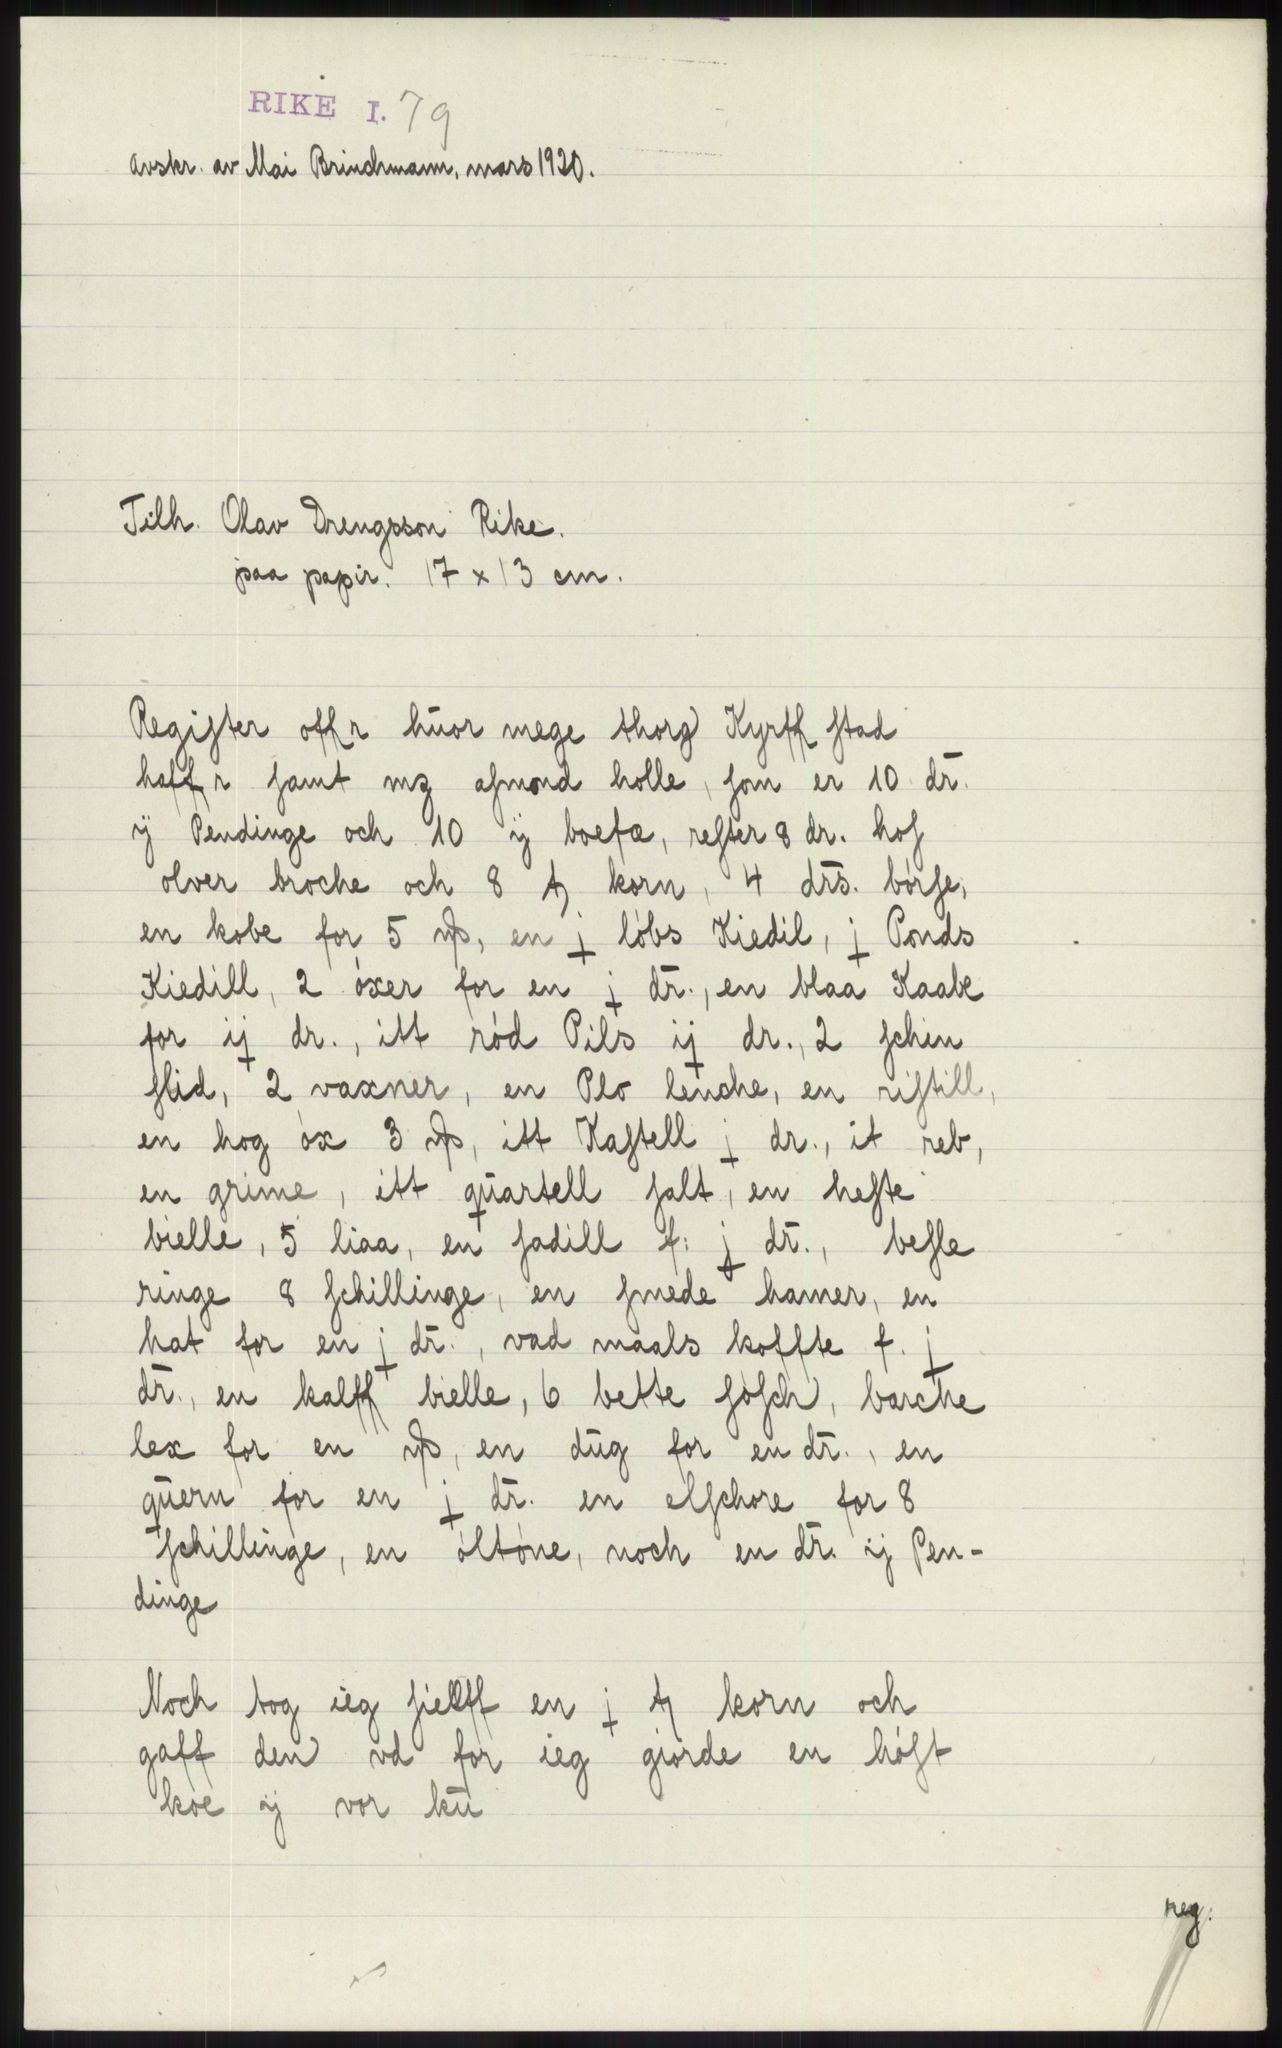 RIKE I. 79
Avskr. av Mai Brinchmann, mars 1920.
Tilh. Olav Drengsson Rike.
paa papir. 17 x 13 cm.
Regiſter offr huor mege thorg Kyrff ſtad
haffr ſamt mꝫ aſmond holle, ſom er 10 dr.
ÿ Pendinge och 10 ÿ boefæ, reſter 8 dr. hoſ
olver broche och 8 korn, 4 drs. børſe,
en kobe for 5, en j løbs Kiedil, j Ponds
Kiedill, 2 øxer for en j dr., en blaa Kaabe
for ij dr., itt rød Pils ij dr., 2 ſchin
ſlid, 2 vaxner, en Plo lenche, en riſtill,
en hog øx 3, itt Kaſtell j dr., it reb,
en grime, itt quartell ſalt, en heſte
bielle, 5 liaa, en ſadill f: j dr., beſle
ringe 8 ſchillinge, en ſmede hamer, en
hat for en j dr., vad maals koffte f. j
dr., en kalff bielle, 6 bette ſøſch, barche
lex for en, en dug for en dr., en
quern for en j dr. en elſchore for 8
ſchillinge, en øltøne, noch en dr. ij Pen-
dinge
Noch tog ieg ſielff en j korn och
gaff den vd for ieg giorde en høſt
køe ÿ vor ku
reg.